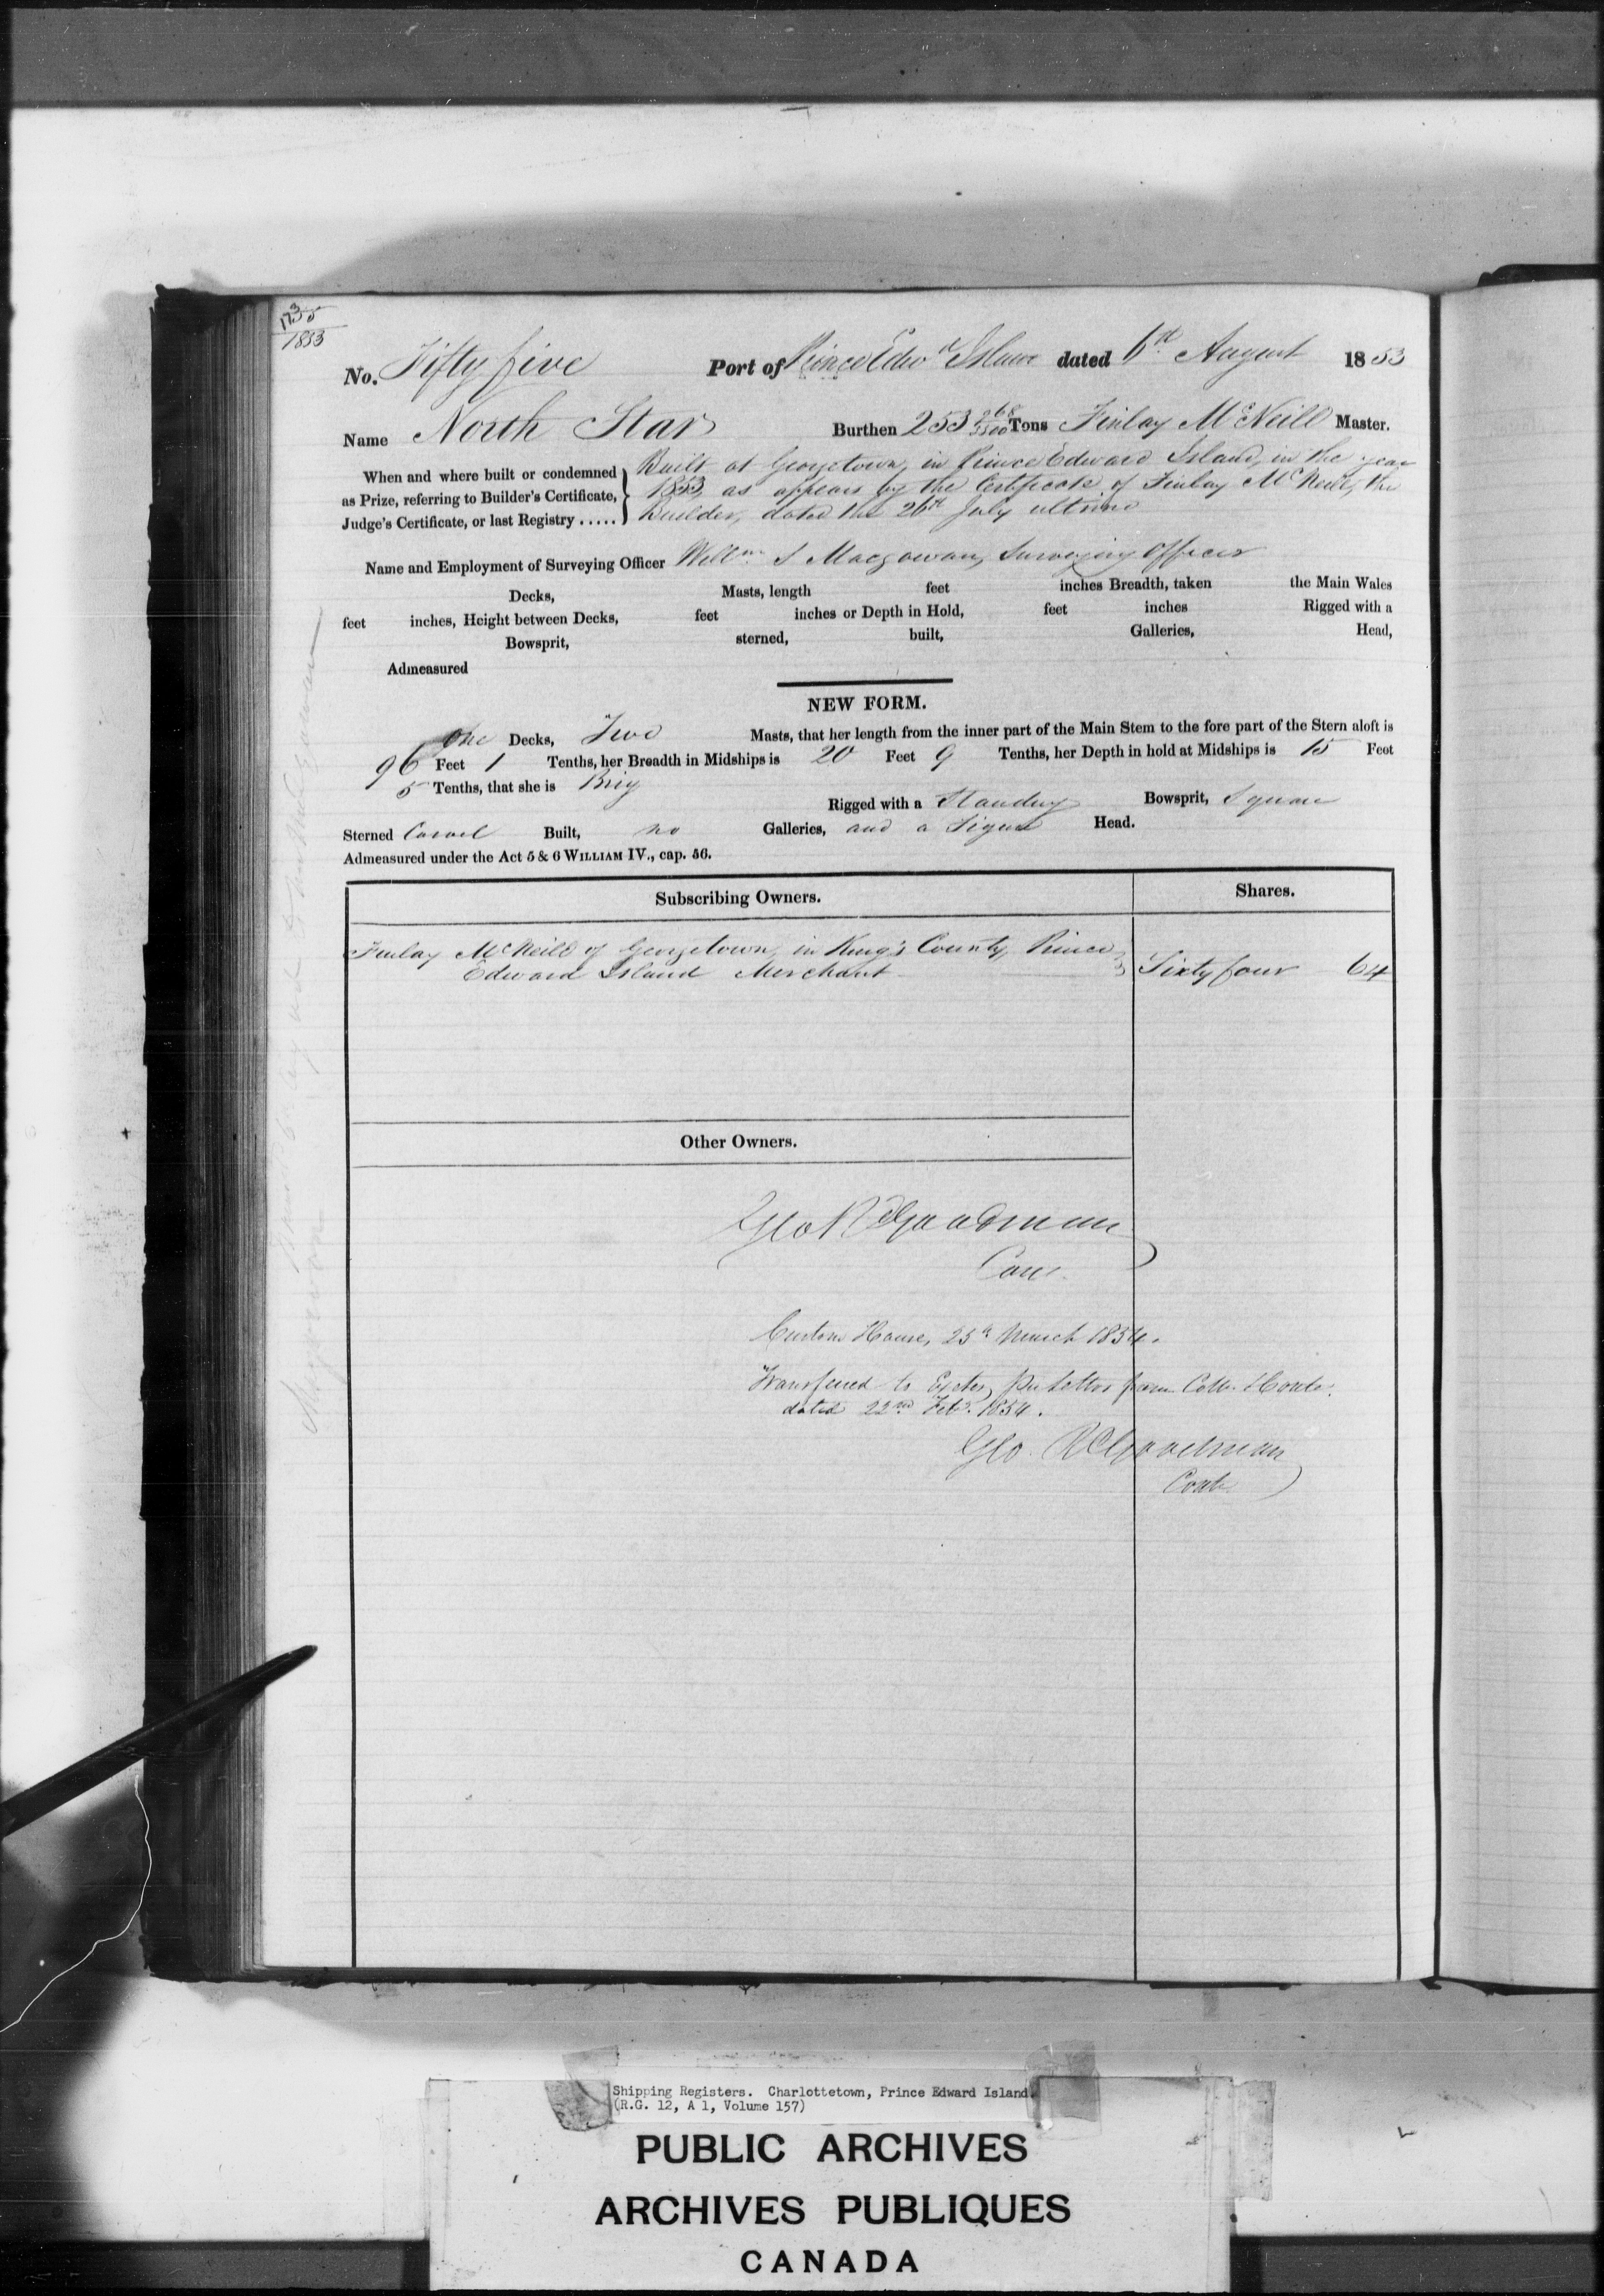 1853
No. Fifty five Port of Prince Edwd Island dated 6th August 1853
Name North Star Burthen 253 268/3500 Tons Finlay McNeill Master.
When and where built or condemned as Prize, referring to Builder's Certificate, Judge's Certificate, or last Registry .....
Built at Georgetown, in Prince Edward Island, in the year
1853, as appears by the Certificate of Finlay McNeill, the
Builder, dated the 26th July ultimo
Name and Employment of Surveying Officer Willm S Macgowan, Surveying Officer
Decks, Masts, length feet inches Breadth, taken the Main Wales
feet inches, Height between Decks, feet inches or Depth in Hold, feet inches Rigged with a
Bowsprit, sterned, built, Galleries, Head,
Admeasured
NEW FORM.
One Decks, Two Masts, that her length from the inner part of the Main Stem to the fore part of the Stern aloft is
96 Feet 1 Tenths, her Breadth in Midships is 20 Feet 9 Tenths, her Depth in hold at Midships is 15 Feet
5 Tenths, that she is Brig Rigged with a Standing Bowsprit, Square
Sterned Carvel Built, no Galleries, and a Figure Head.
Admeasured under the Act 5 & 6 WILLIAM IV., cap. 56.
Subscribing Owners. Shares.
Finlay McNeill of Georgetown, in King's County, Prince
Edward Island Merchant Sixty four 64
Other Owners.
Geo R Goodman
Custom House, 25th March 1854.
Transferred to Exeter, Per Letter from Collr. & Contr.
dated 22nd Feby. 1854.
Geo. R Goodman
Contr.
Shipping Registers. Charlottetown, Prince Edward Island.
(R.G. 12, A 1, Volume 157)
PUBLIC ARCHIVES
ARCHIVES PUBLIQUES
CANADA